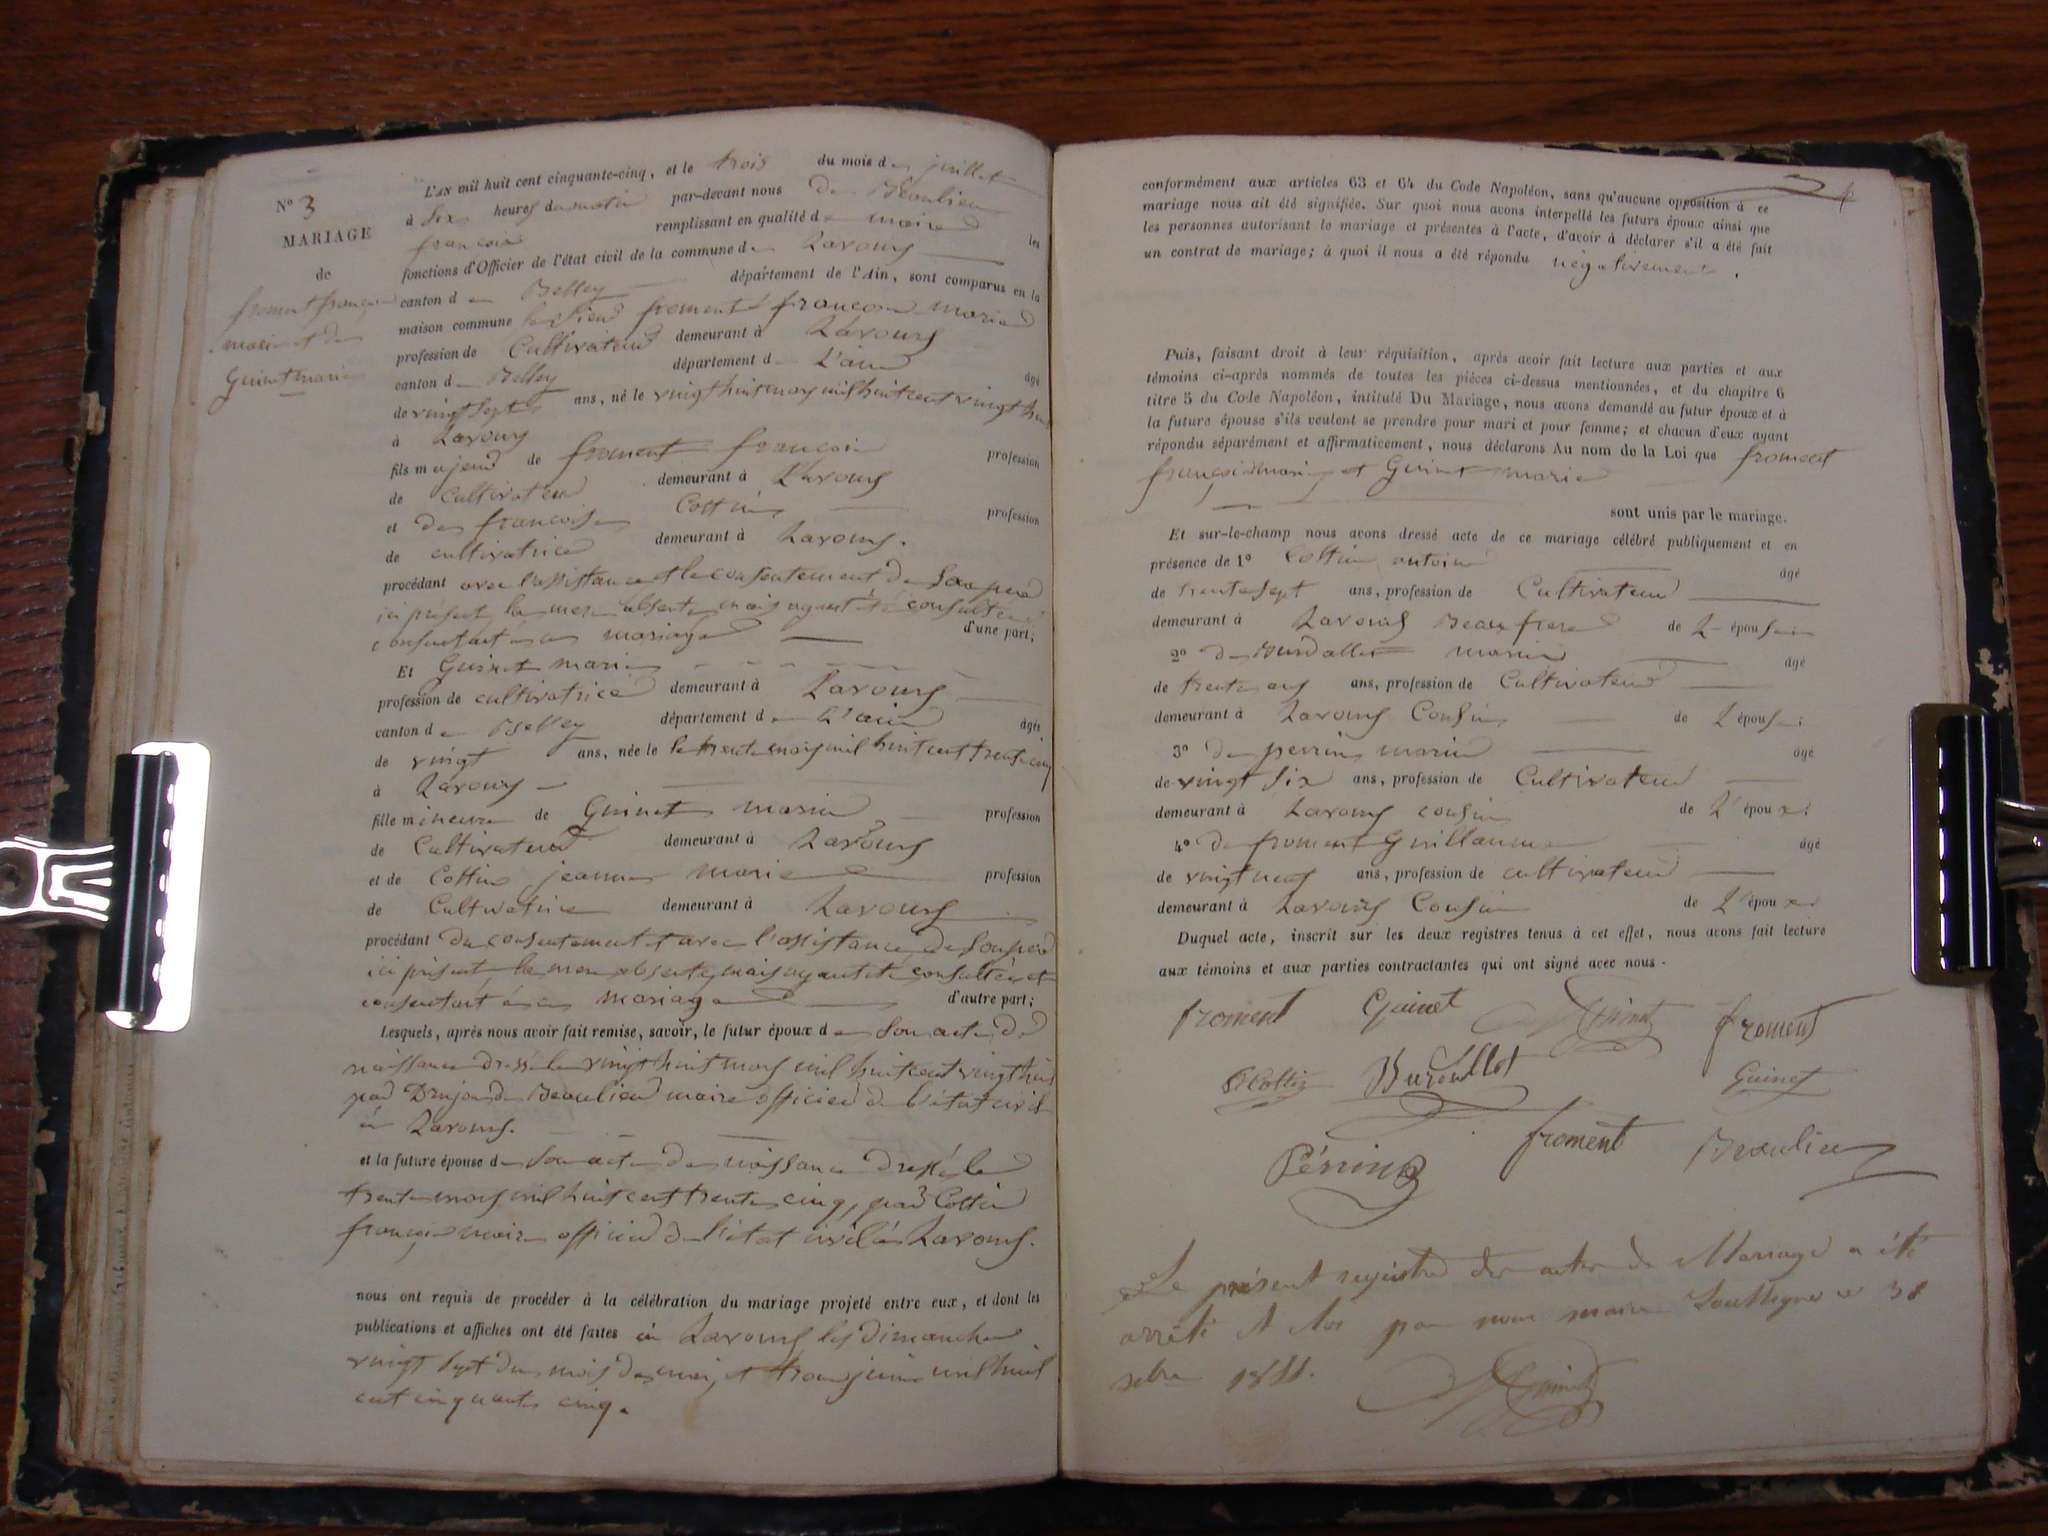 N° 3
MARIAGE
de
froment françois
marie et de
Guinet marie
L'AN mil huit cent cinquante-cinq, et le trois du mois de juillet
à six heures du matin par-devant nous de Beaulieu
françois remplissant en qualité de maire les
fonctions d'Officier de l'état civil de la commune de Lavours
canton de Belley département de l'Ain, sont comparus en la
maison commune le sieur froment françois marie
profession de Cultivateur demeurant à Lavours
canton de Belley département de L'ain âgé
de vingt sept ans, né le vingt huit mars mil huit cent vingt huit
à Lavours
fils majeur de froment françois profession
de cultivateur demeurant à Lavours
et de françoise Cottin profession
de cultivatrice demeurant à Lavours.
procédant avec l'assistance et le consentement de Son pere
ici présent la mere absente mais ayant été consultée
consentant au mariage d'une part;
Et Guinet marie
profession de cultivatrice demeurant à Lavours
canton de Belley département de L'ain âgée
de vingt ans, née le le trente mars mil huit cent trente cinq
à Lavours
fille mineure de Guinet marin profession
de Cultivateur demeurant à Lavours
et de Cottin jeanne marie profession
de Cultivatrice demeurant à Lavours
procédant du consentement et avec l'assistance de Son pere
ici présent la mere absente mais ayant été consultée et
consentant à mariage d'autre part;
Lesquels, après nous avoir fait remise, savoir, le futur époux de Son acte de
naissance dressé le vingt huit mars mil huit cent vingt huit
par Drujon de Beaulieu maire officier de l'état civil
à Lavours.
et la future épouse de Son acte de naissance dressé le
trente mars mil huit cent trente cinq, par Cottin
françois maire officier de l'état civil à Lavours.
nous ont requis de procéder à la célébration du mariage projeté entre eux, et dont les
publications et affiches ont été faites à Lavours les dimanches
vingt sept du mois de mai, et trois juin mil huit
cent cinquante cinq.
conformément aux articles 63 et 64 du Code Napoléon, sans qu'aucune opposition à ce
mariage nous ait été signifiée. Sur quoi nous avons interpellé les futurs époux ainsi que
les personnes autorisant le mariage et présentes à l'acte, d'avoir à déclarer s'il a été fait
un contrat de mariage; à quoi il nous a été répondu négativement.
Puis, faisant droit à leur réquisition, après avoir fait lecture aux parties et aux
témoins ci-après nommés de toutes les pièces ci-dessus mentionnées, et du chapitre 6
titre 5 du Code Napoléon, intitulé Du Mariage, nous avons demandé au futur époux et à
la future épouse s'ils veulent se prendre pour mari et pour femme; et chacun d'eux ayant
répondu séparément et affirmativement, nous déclarons Au nom de la Loi que froment
françois marie et Guinet marie
sont unis par le mariage.
Et sur-le-champ nous avons dressé acte de ce mariage célébré publiquement et en
présence de 1° Cottin antoine âgé
de trente sept ans, profession de Cultivateur
demeurant à Lavours Beau frere de L'épouse
2° de Burdallet marin âgé
de trente ans, profession de Cultivateur
demeurant à Lavours Cousin de L'épouse;
3° de perrin marin âgé
de vingt six ans, profession de Cultivateur
demeurant à Lavours cousin de L'époux;
4° de froment Guillaume âgé
de vingt neuf ans, profession de cultivateur
demeurant à Lavours Cousin de L'époux.
Duquel acte, inscrit sur les deux registres tenus à cet effet, nous avons fait lecture
aux témoins et aux parties contractantes qui ont signé avec nous.
froment Guinet Guinet froment
Cottin Burdallet Guinet
Pérrin froment Beaulieu
Le présent registre des actes de Mariage a été
arrêté et clos par nous maire Soussigné ce 38